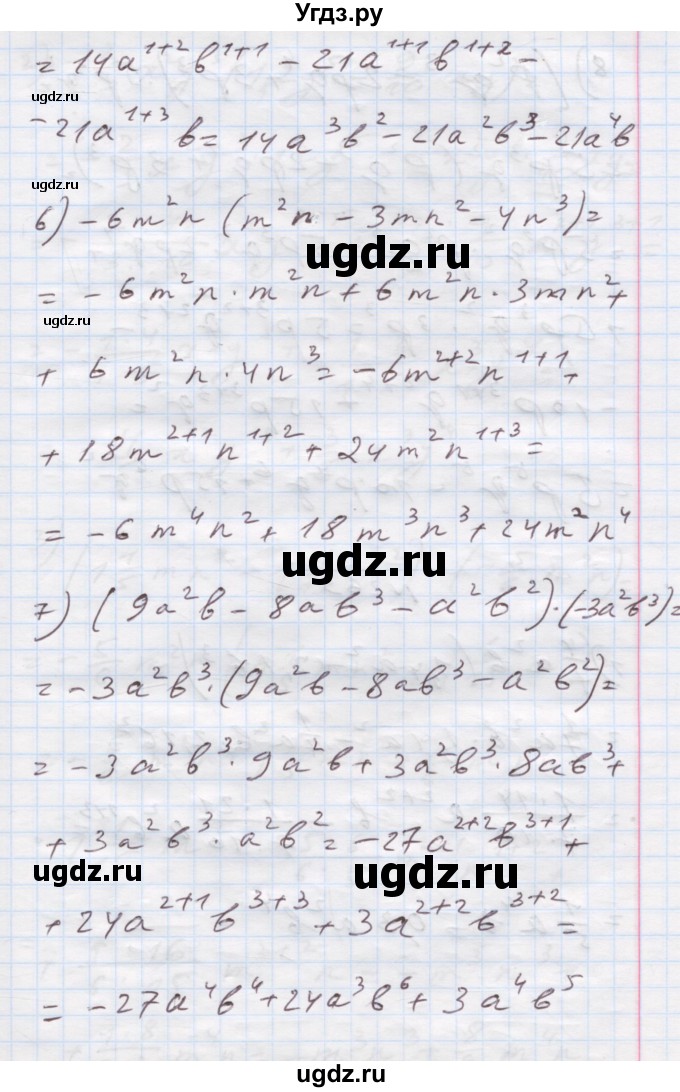 Угдз.ру
= 14a^{1+2}b^{1+1} - 21a^{1+1}b^{1+2} -
ugdz.ru
- 21a^{1+3}b = 14a^3b^2 - 21a^2b^3 - 21a^4b
ugdz.ru
6) - 6m^2n (m^2n - 3mn^2 - 4n^3) =
ugdz.ru
= - 6m^2n · m^2n + 6m^2n · 3mn^2 +
ugdz.ru
+ 6m^2n · 4n^3 = - 6m^{2+2}n^{1+1} +
+ 18m^{2+1}n^{1+2} + 24m^2n^{1+3} =
= - 6m^4n^2 + 18m^3n^3 + 24m^2n^4
ugdz.ru
7) (9a^2b - 8ab^3 - a^2b^2) · (-3a^2b^3) =
= - 3a^2b^3 · (9a^2b - 8ab^3 - a^2b^2) =
= - 3a^2b^3 · 9a^2b + 3a^2b^3 · 8ab^3 +
+ 3a^2b^3 · a^2b^2 = - 27a^{2+2}b^{3+1} +
ugdz.ru
ugdz.ru
+ 24a^{2+1}b^{3+3} + 3a^{2+2}b^{3+2} =
= - 27a^4b^4 + 24a^3b^6 + 3a^4b^5
ugdz.ru
Угдз.ру